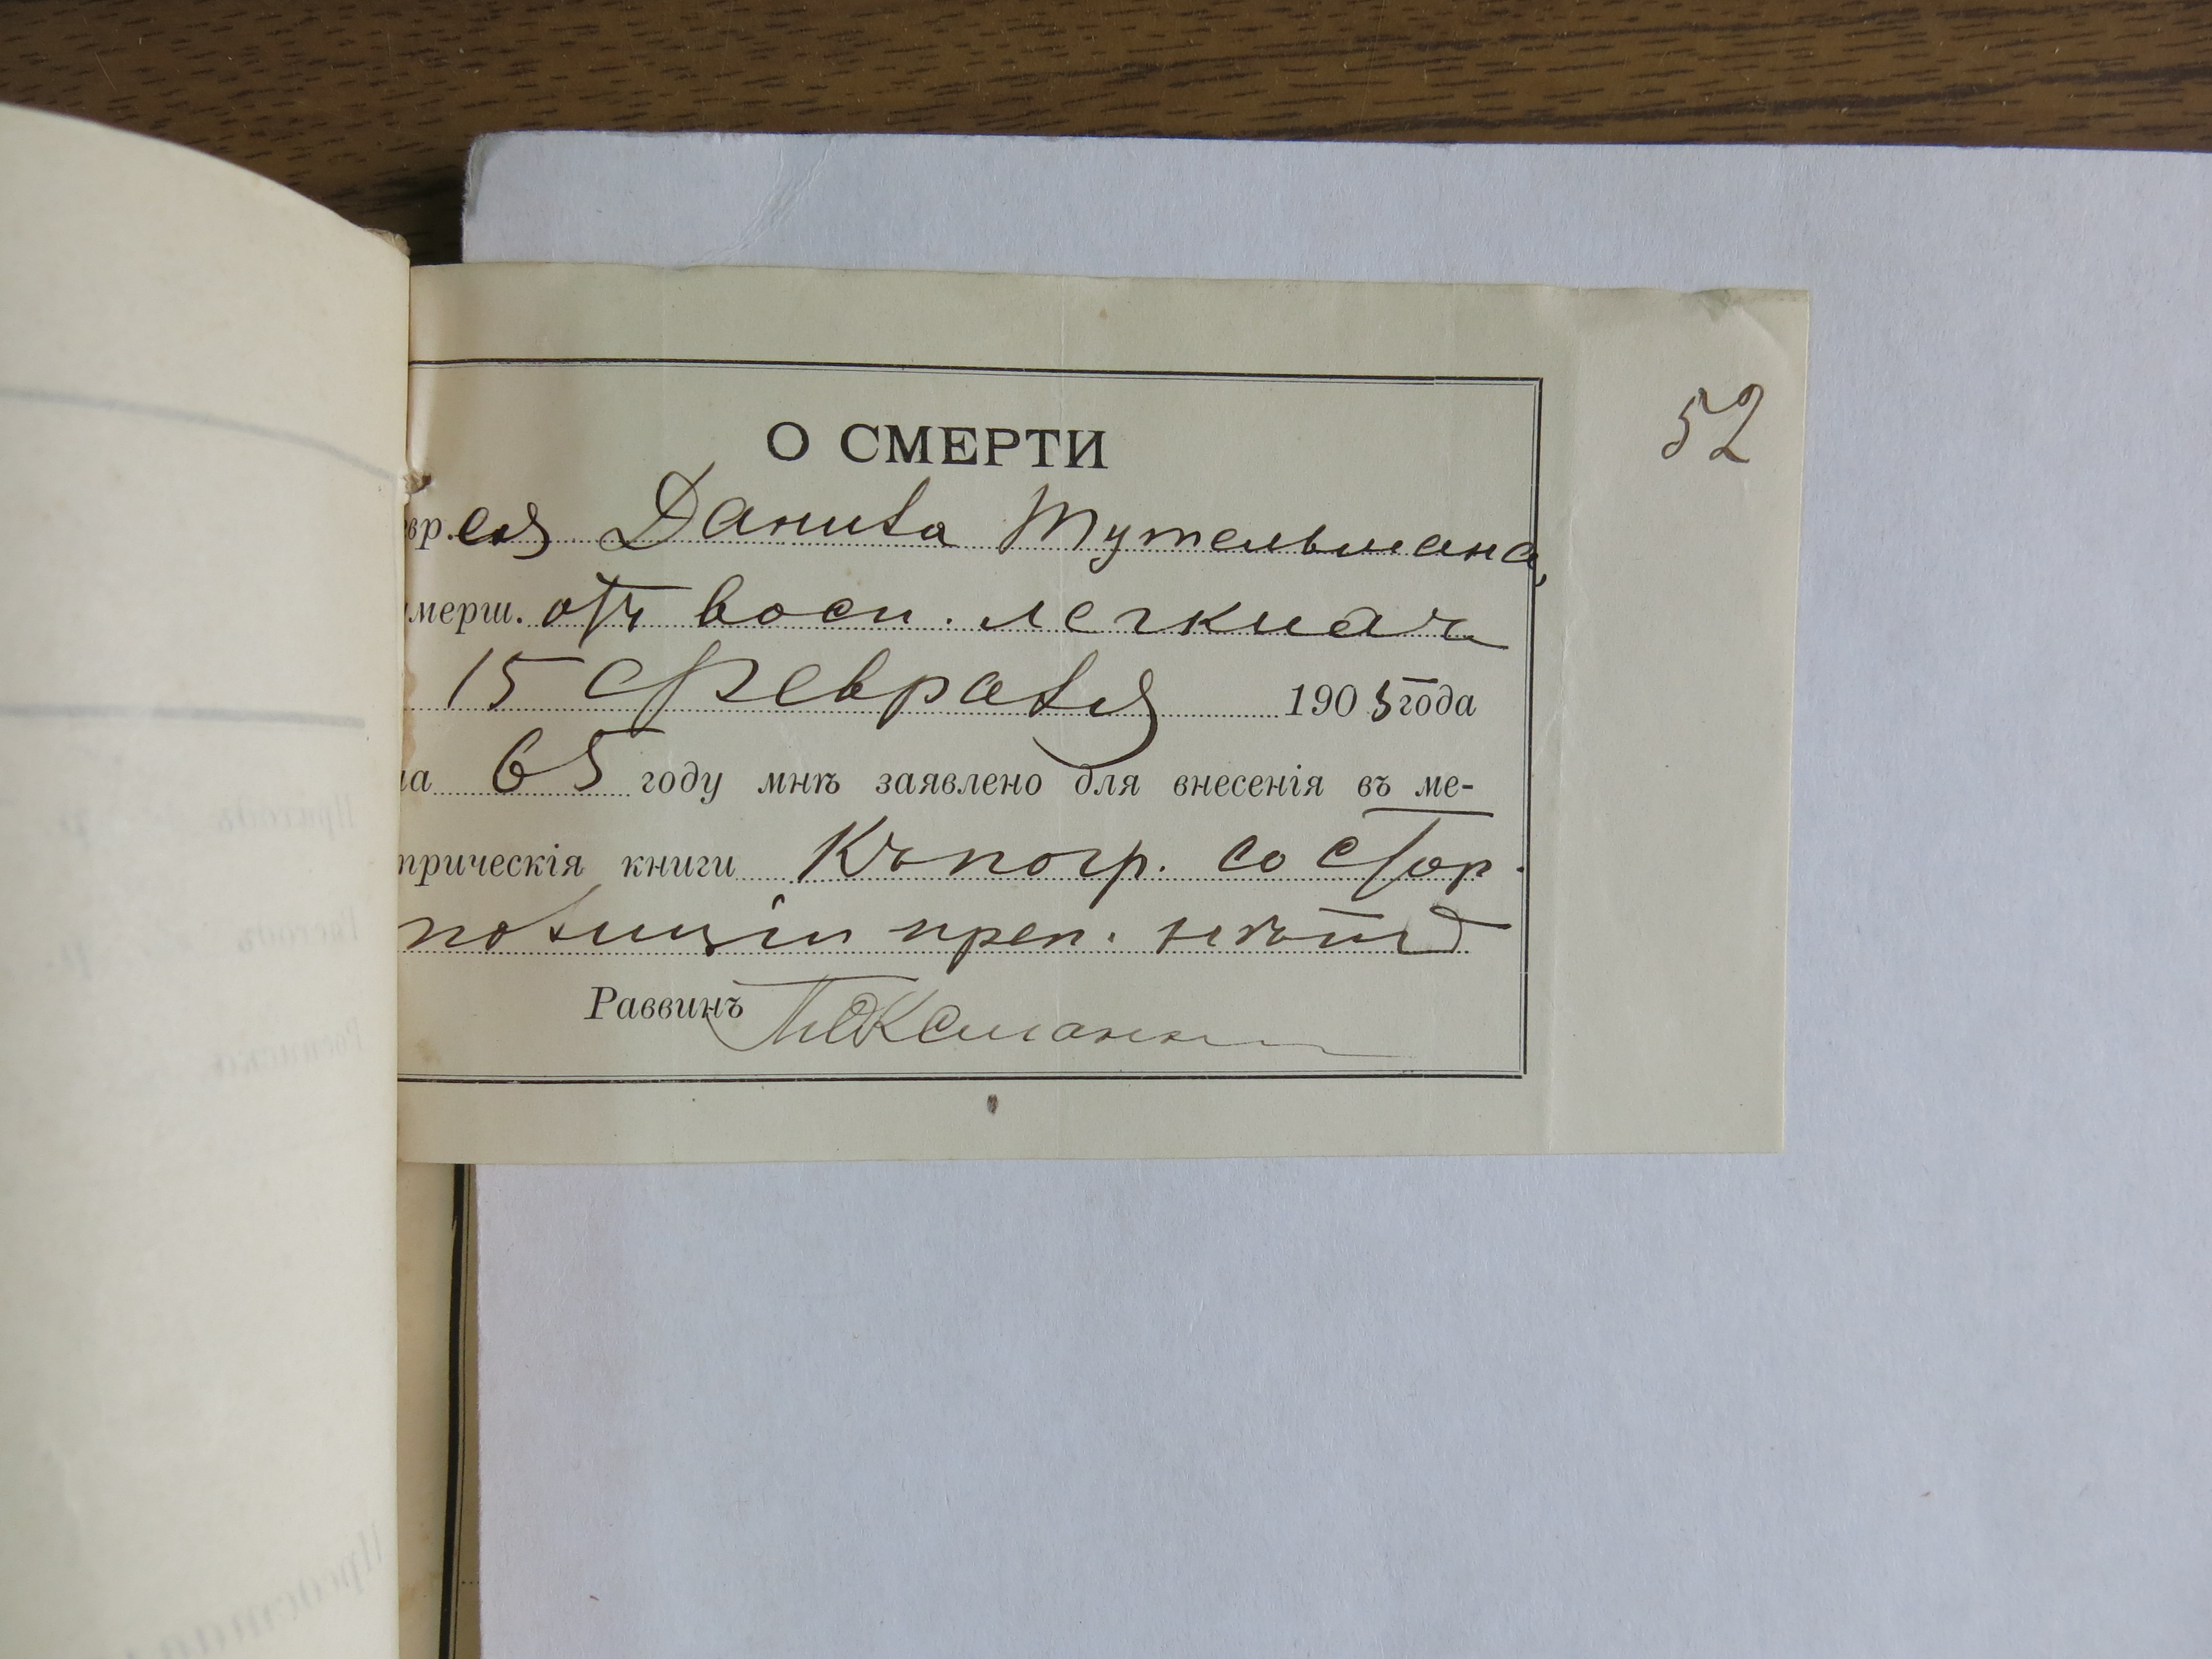 52
О СМЕРТИ
евр. ея Данила Тутельмана,
умерш. отъ восп. легкихъ
15 Февраля 1905 года
на 65 году мнѣ заявлено для внесенія въ ме-
трическія книги Къ погр. со стор.
полиціи преп. нѣтъ
Раввинъ